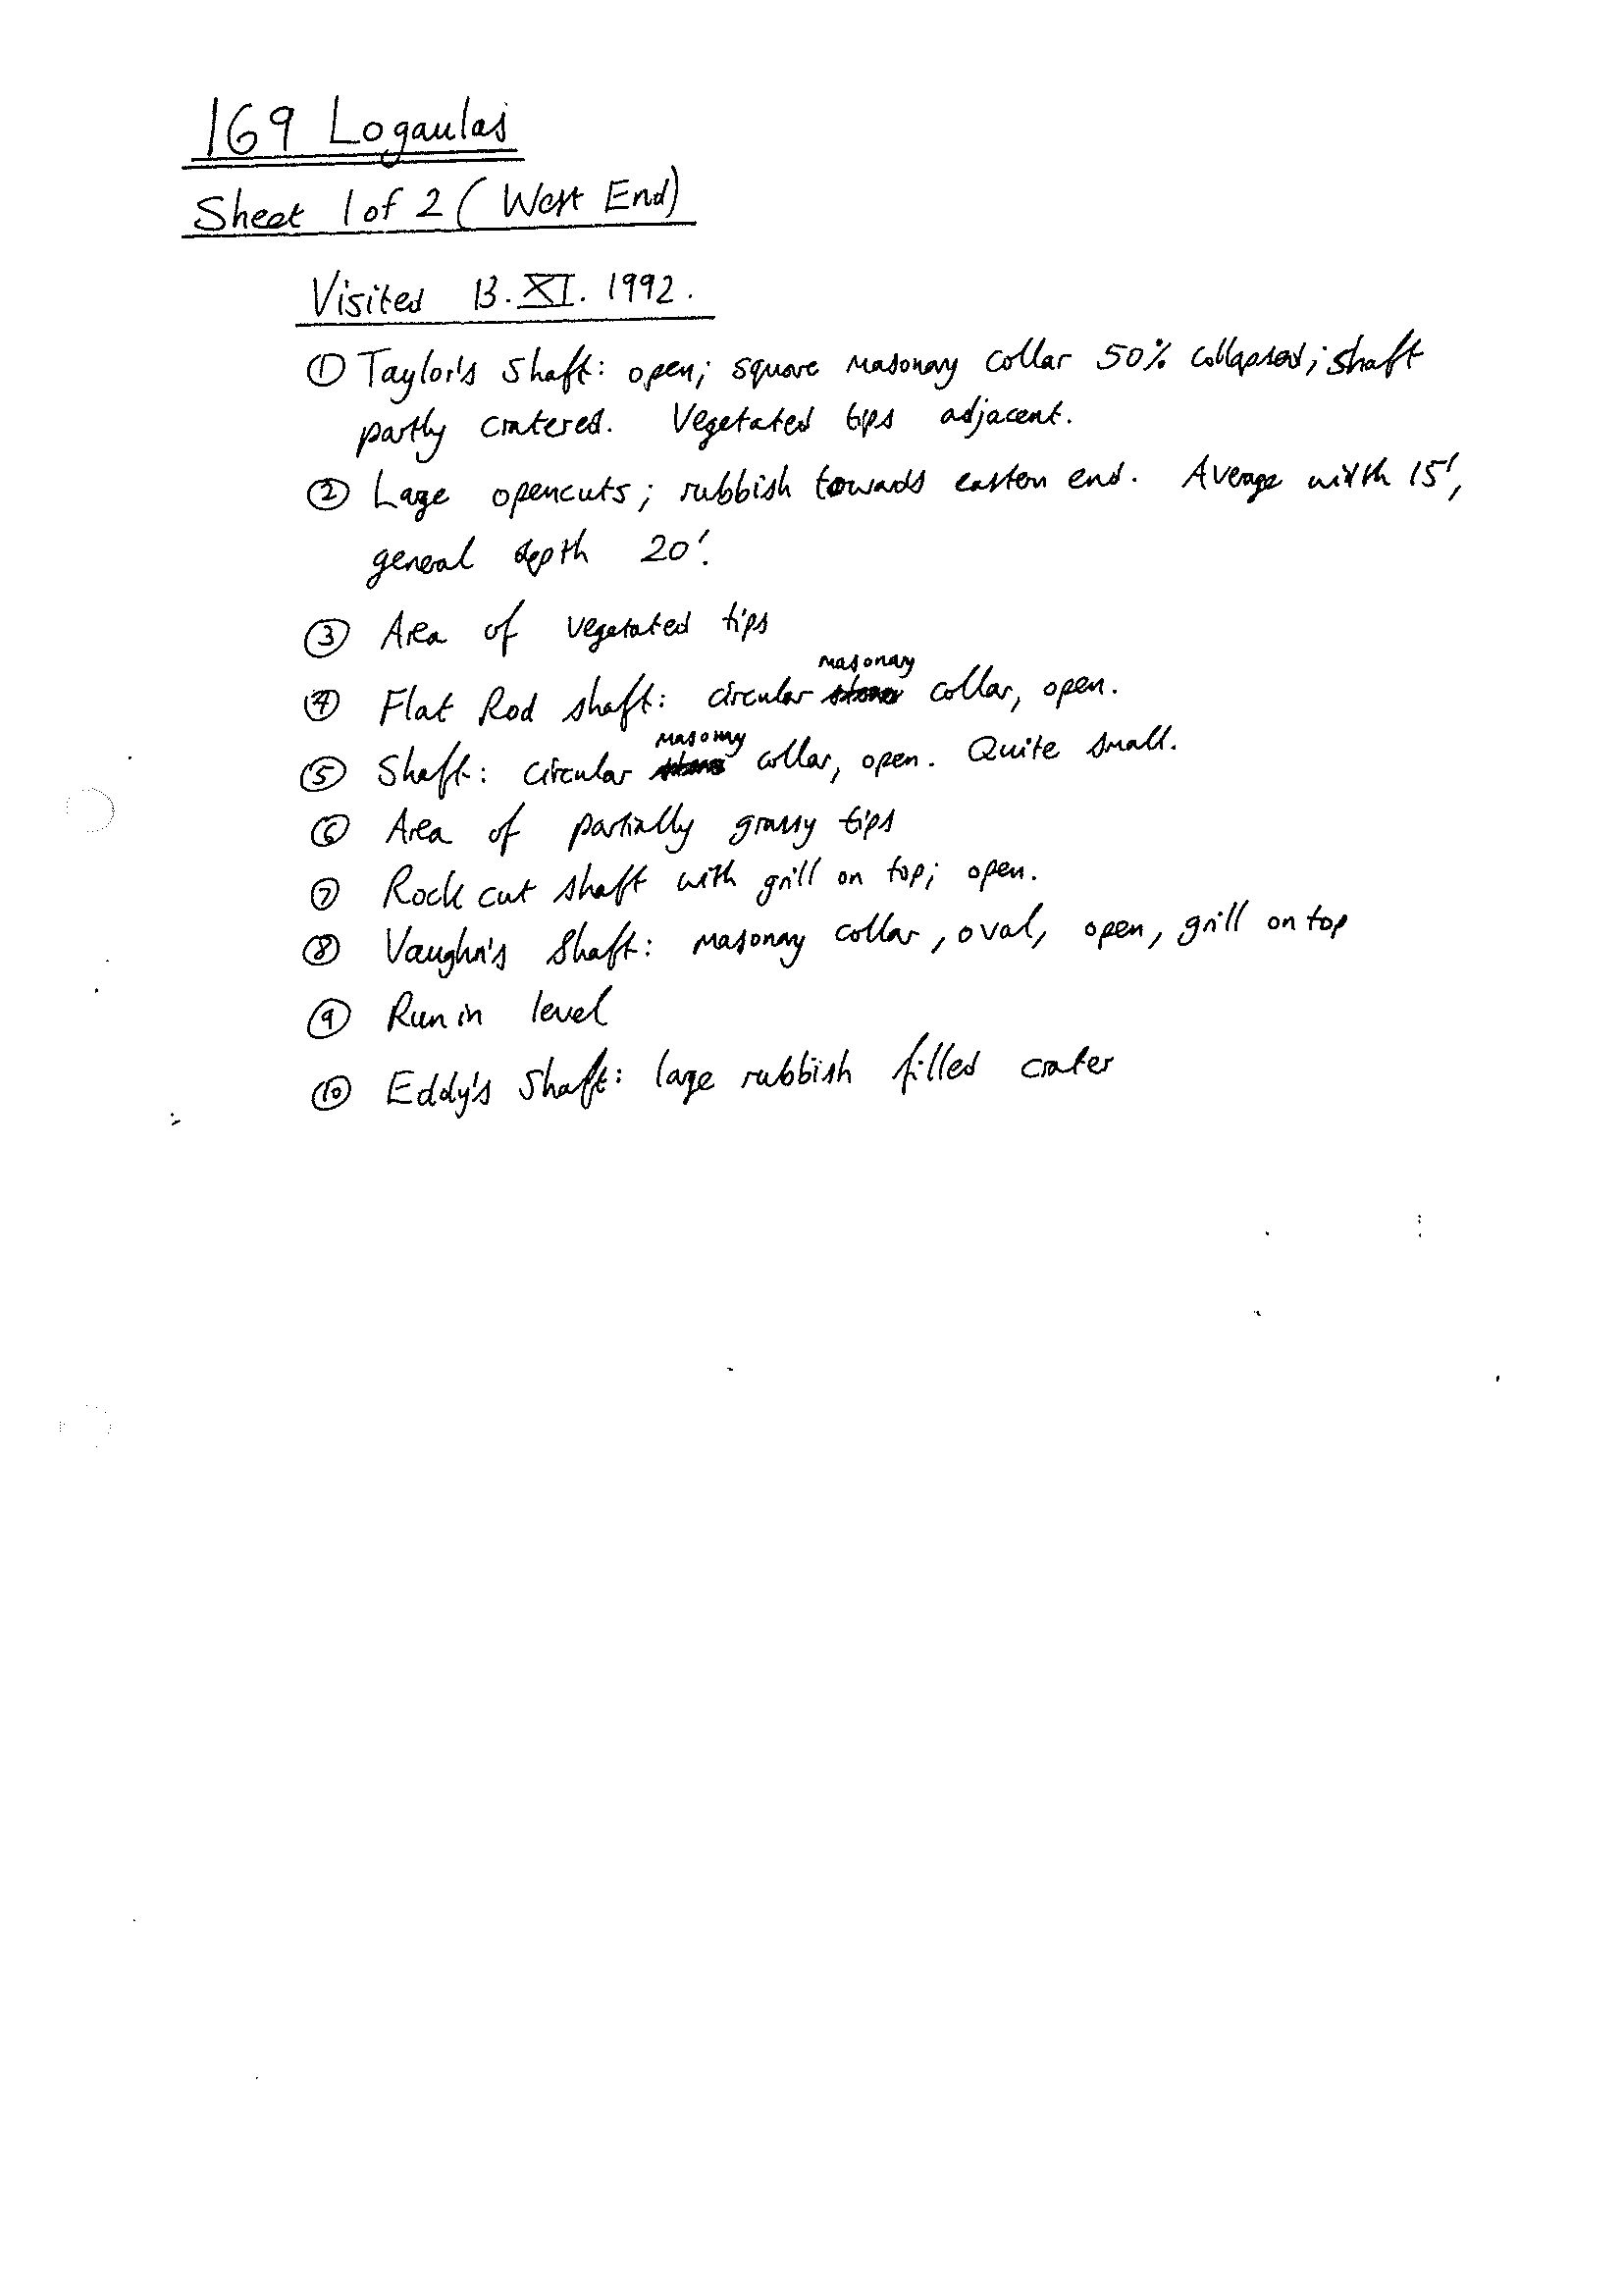 169 Logaulas
Sheet 1 of 2 (West End)
Visited 13.XI.1992.
① Taylor's Shaft: open; square masonay collar 50% collapsed; shaft
partly cratered. Vegetated tips adjacent.
② Large opencuts; rubbish towards eastern end. Average width 15',
general depth 20'.
③ Area of vegetated tips
④ Flat Rod shaft: circular masonay collar, open.
⑤ Shaft: circular masonry collar, open. Quite small.
⑥ Area of partially grassy tips
⑦ Rock cut shaft with grill on top; open.
⑧ Vaughn's Shaft: masonay collar, oval, open, grill on top
⑨ Run in level
⑩ Eddy's Shaft: large rubbish filled crater